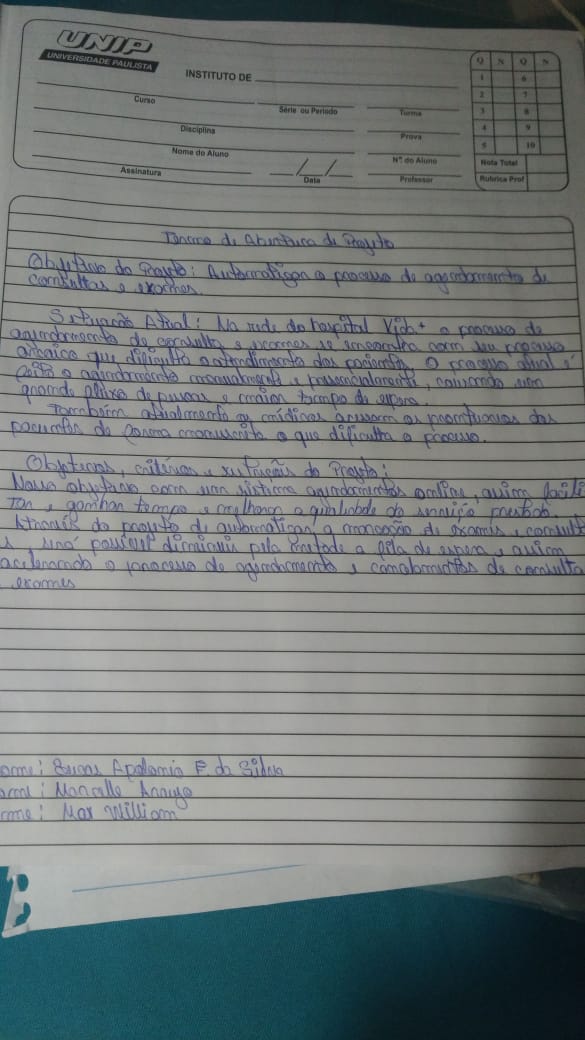 UNIP
UNIVERSIDADE PAULISTA
INSTITUTO DE
Curso
Série ou Período
Turma
Disciplina
Prova
Nome do Aluno
Nº do Aluno
Assinatura
Data
Professor
Q N Q N
1 6
2 7
3 8
4 9
5 10
Nota Total
Rubrica Prof
Termo de Abertura de Projeto
Objetivo do Projeto: Automatizar o processo de agendamento de
consultas e exames.
Situação Atual: Na rede do hospital Vida+ o processo de
agendamento de consulta e exames se encontra com seu processo
arcaico que dificulta o atendimento dos pacientes. O processo atual é
feito o agendamento manualmente e presencialmente, causando um
grande fluxo de pessoas e maior tempo de espera.
Também atualmente os médicos acessam os prontuarios dos
pacientes de forma manuscrita o que dificulta o processo.
Objetivos, critérios e restrições do Projeto:
Nosso objetivo com um sistema agendamentos online, assim facili
tar e ganhar tempo e melhorar a qualidade do serviço prestado
Através do projeto de automatizar a marcação de exames e consult
será possivel diminuir pela metade a fila de espera e assim
acelerando o processo de agendamento e cancelamentos de consulta
exames
ome: Apolonio F. da Silva
ome: Marcelle Araujo
ome: Max William